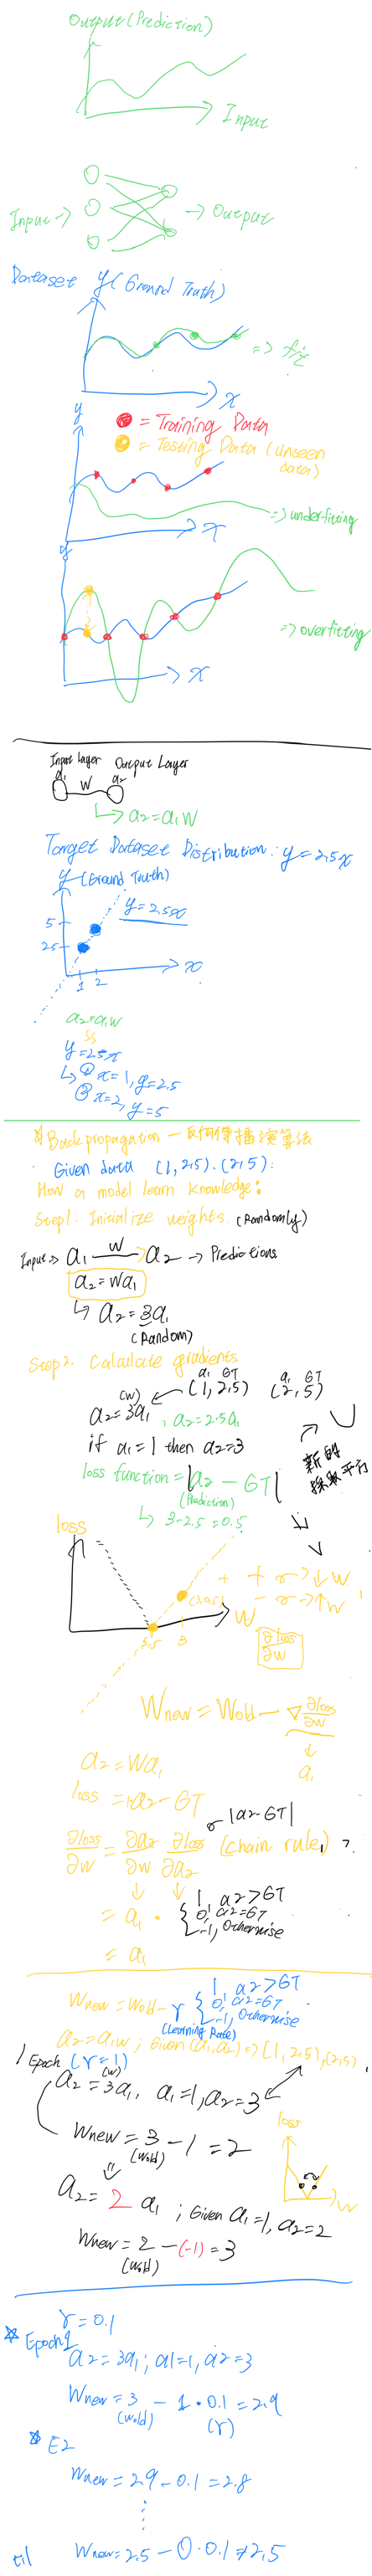 Output (Prediction)
Input
Input → → Output
Dataset y (Ground Truth)
=> fit
x
y
= Training Data
= Testing Data (Unseen data)
=> underfitting
x
y
=> overfitting
x
Input layer Output Layer
a1 W a2
a2 = a1W
Target Dataset Distribution: y = 2.5x
y (Ground Truth)
y = 2.5x
5
2.5
1 2
x
a2 = a1W
y = 2.5x
① x = 1, y = 2.5
② x = 2, y = 5
Backpropagation — 反向傳播演算法
Given data (1, 2.5). (2, 5).
How a model learn knowledge:
Step1. Initialize weights (Randomly)
Input → a1 W a2 → Predictions
a2 = Wa1
a2 = 3a1
(Random)
Step2. Calculate gradients
a1 GT a1 GT
(W) (1, 2.5) (2, 5)
a2 = 3a1, a2 = 2.5a1
if a1 = 1 then a2 = 3
新的
採取平方
loss function = |a2 - GT|
(Prediction)
3 - 2.5 = 0.5
loss
2.5 3
W
+ + r → ↓ W
- r → ↑ W
∂loss
∂W
Wnew = Wold - ∇ ∂loss
∂W
a1
a2 = Wa1
loss = a2 - GT
|a2 - GT|
∂loss = ∂a2 ∂loss (chain rule)
∂W ∂W ∂a2
= a1 · { 1, a2 > GT
0, a2 = GT
-1, Otherwise
= a1
1, a2 > GT
Wnew = Wold - γ { 0, a2 = GT
-1, Otherwise
(Learning Rate)
a2 = a1W ; Given (a1, a2) => (1, 2.5), (2, 5)
1 Epoch (γ = 1)
(W)
a2 = 3a1, a1 = 1, a2 = 3
Wnew = 3 - 1 = 2
(Wold)
loss
W
a2 = 2 a1 ; Given a1 = 1, a2 = 2
Wnew = 2 - (-1) = 3
(Wold)
γ = 0.1
Epoch1
a2 = 3a1 ; a1 = 1, a2 = 3
Wnew = 3 - 1 · 0.1 = 2.9
(Wold) (γ)
E2
Wnew = 2.9 - 0.1 = 2.8
til Wnew = 2.5 - 0 · 0.1 = 2.5